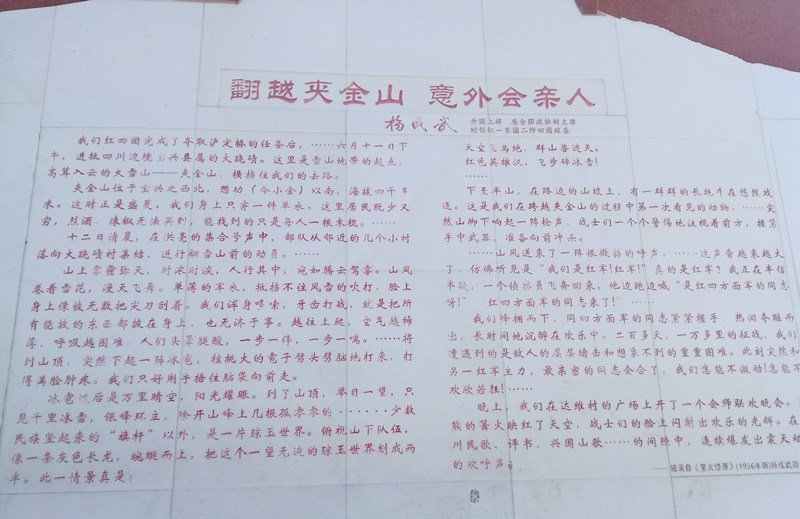 翻越夹金山 意外会亲人
杨成武
开国上将 原全国政协副主席
时任红一军团二师四团政委
我们红四团完成了夺取泸定桥的任务后，……六月十一日下
午，进抵四川边境宝兴县属的大硗碛。这里是雪山地带的起点，
高耸入云的大雪山——夹金山，横挡住我们的去路。
夹金山位于宝兴之西北，懋功（今小金）以南，海拔四千多
米。这时正是盛夏，我们身上只穿一件单衣。这里居民既少又
穷，烈酒、辣椒无法买到，能找到的只是每人一根木棍。……
十二日清晨，在洪亮的集合号声中，部队从邻近的几个小村
落向大硗碛村集结，进行翻雪山前的动员。……
山上雾霾弥天，时浓时淡，人行其中，宛如腾云驾雾。山风
卷着雪花，漫天飞舞。单薄的军衣，抵挡不住风雪的吹打，脸上
身上像被无数把尖刀刮着。我们浑身哆嗦，牙齿打战，就是把所
有能披的东西都披在身上，也无济于事。越往上爬，空气越稀
薄，呼吸越困难，人们头晕腿酸，一步一停，一步一喘。……将
到山顶，突然下起一阵冰雹，核桃大的雹子劈头劈脑地打来，打
得满脸肿疼。我们只好用手捂住脑袋向前走。
冰雹过后是万里晴空，阳光耀眼。到了山顶，举目一望，只
见千里冰雪，银峰环立，除开山峰上几根孤零零的……少数
民族竖起来的“旗杆”以外，是一片琼玉世界。俯视山下队伍，
像一条灰色长龙，蜿蜒而上，把这个一望无边的琼玉世界划成两
半。此一情景真是：
天空飞鸟绝，群山兽迹灭。
红色英雄汉，飞步碎冰雪！
……
下至半山，在路边的山坡上，有一群群的长牦牛在悠然戏
逐。这是我们在跨越夹金山的过程中第一次看见的动物。……突
然山脚下响起一阵枪声，战士们一个个警惕地注视着前方，握紧
手中武器，准备向前冲杀。
……山风送来了一阵很微弱的呼声，……这声音越来越大
了，仿佛听见是“我们是红军！红军！”真的是红军？我正在半信
半疑，一个侦察员飞奔回来，他边跑边喊“是红四方面军的同志
呀！”“红四方面军的同志来了！”……
我们蜂拥而下，同四方面军的同志紧紧握手，热泪夺眶而
出，长时间地沉醉在欢乐中。二百多天，一万多里的征战，我们
遭遇到的是敌人的层层堵击和想象不到的重重困难。此刻突然和
另一红军主力，最亲密的同志会合了，我们怎能不激动！怎能不
欢欣若狂！……
晚上，我们在达维村的广场上开了一个会师联欢晚会。
熊的篝火映红了天空，战士们的脸上闪射出欢乐的光辉。在
川民歌、评书、兴国山歌……的间隙中，连续爆发出震天动
的欢呼声
——摘录自《星火燎原》(1956年版)杨成武回